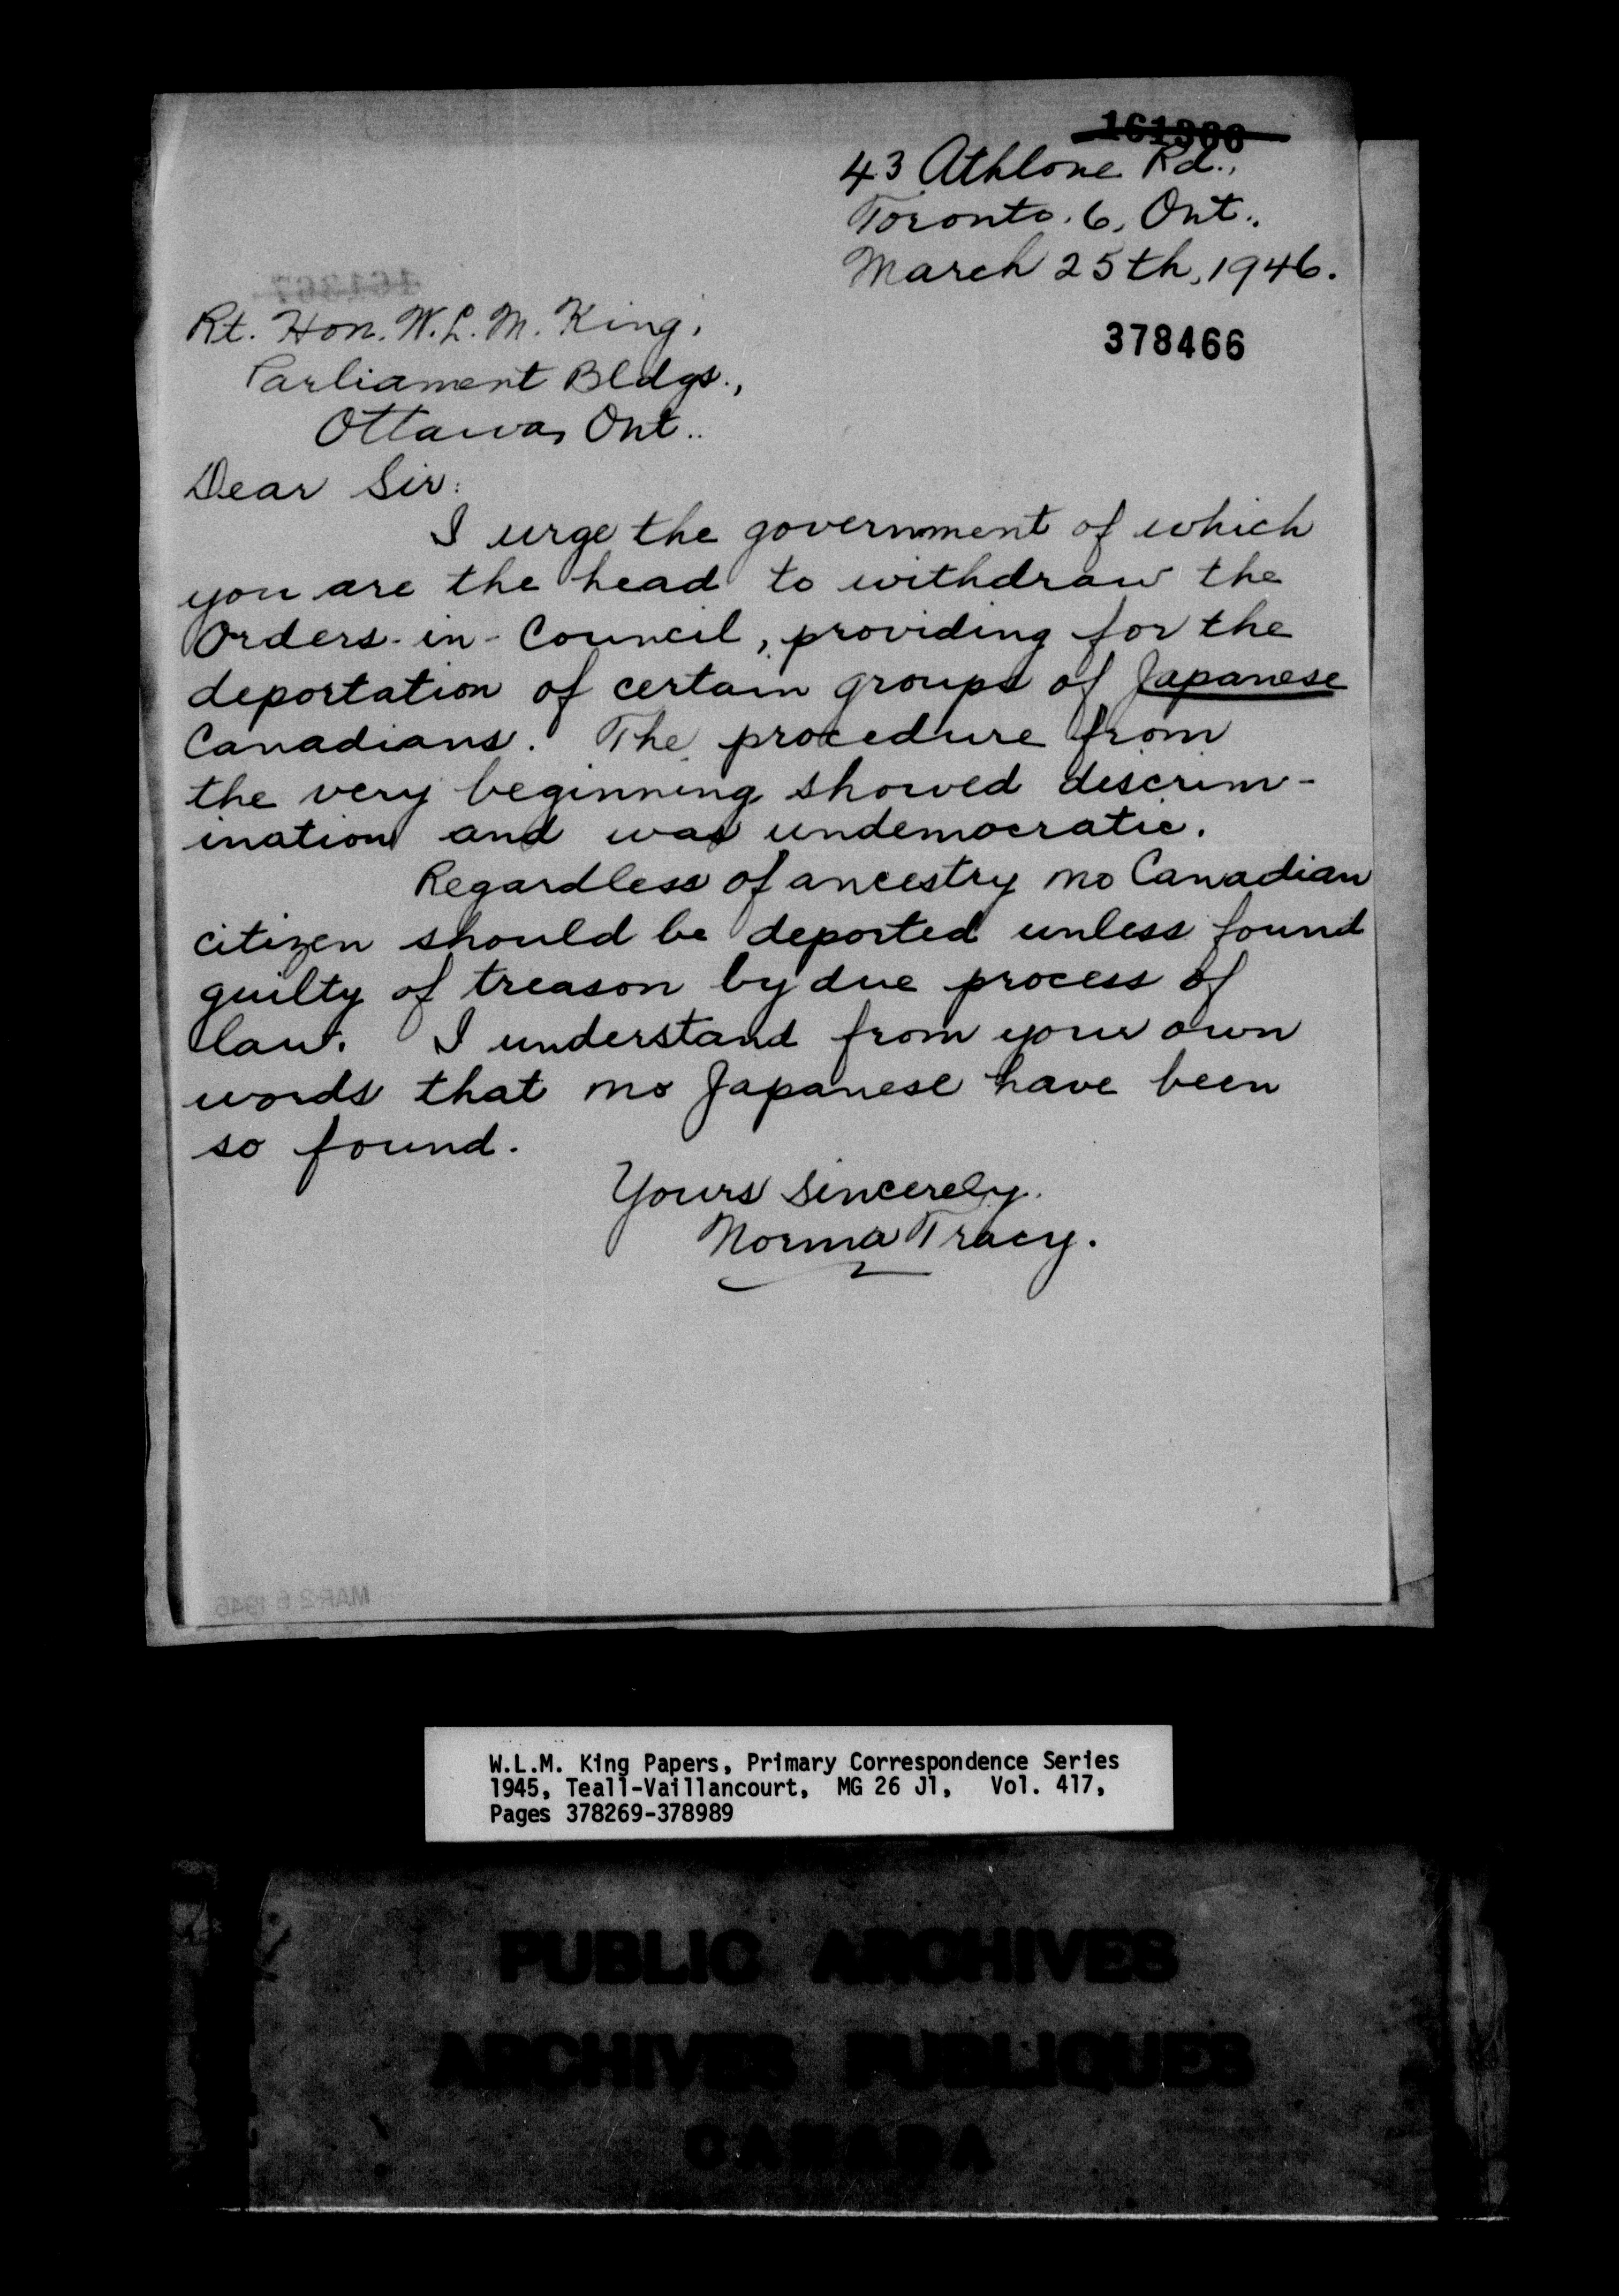 161366
43 Athlone Rd.,
Toronto. 6, Ont.,
March 25th, 1946.
161367
Rt. Hon. W. L. M. King,
378466
Parliament Bldgs.,
Ottawa, Ont..
Dear Sir:
I urge the government of which
you are the head to withdraw the
Orders-in-Council, providing for the
deportation of certain groups of Japanese
Canadians. The procedure from
the very beginning showed discrim-
ination and was undemocratic.
Regardless of ancestry no Canadian
citizen should be deported unless found
guilty of treason by due process of
law. I understand from your own
words that no Japanese have been
so found.
Yours Sincerely.
Norma Tracy.
MAR 26 1946
W.L.M. King Papers, Primary Correspondence Series
1945, Teall-Vaillancourt, MG 26 J1, Vol. 417,
Pages 378269-378989
PUBLIC ARCHIVES
ARCHIVES PUBLIQUES
CANADA